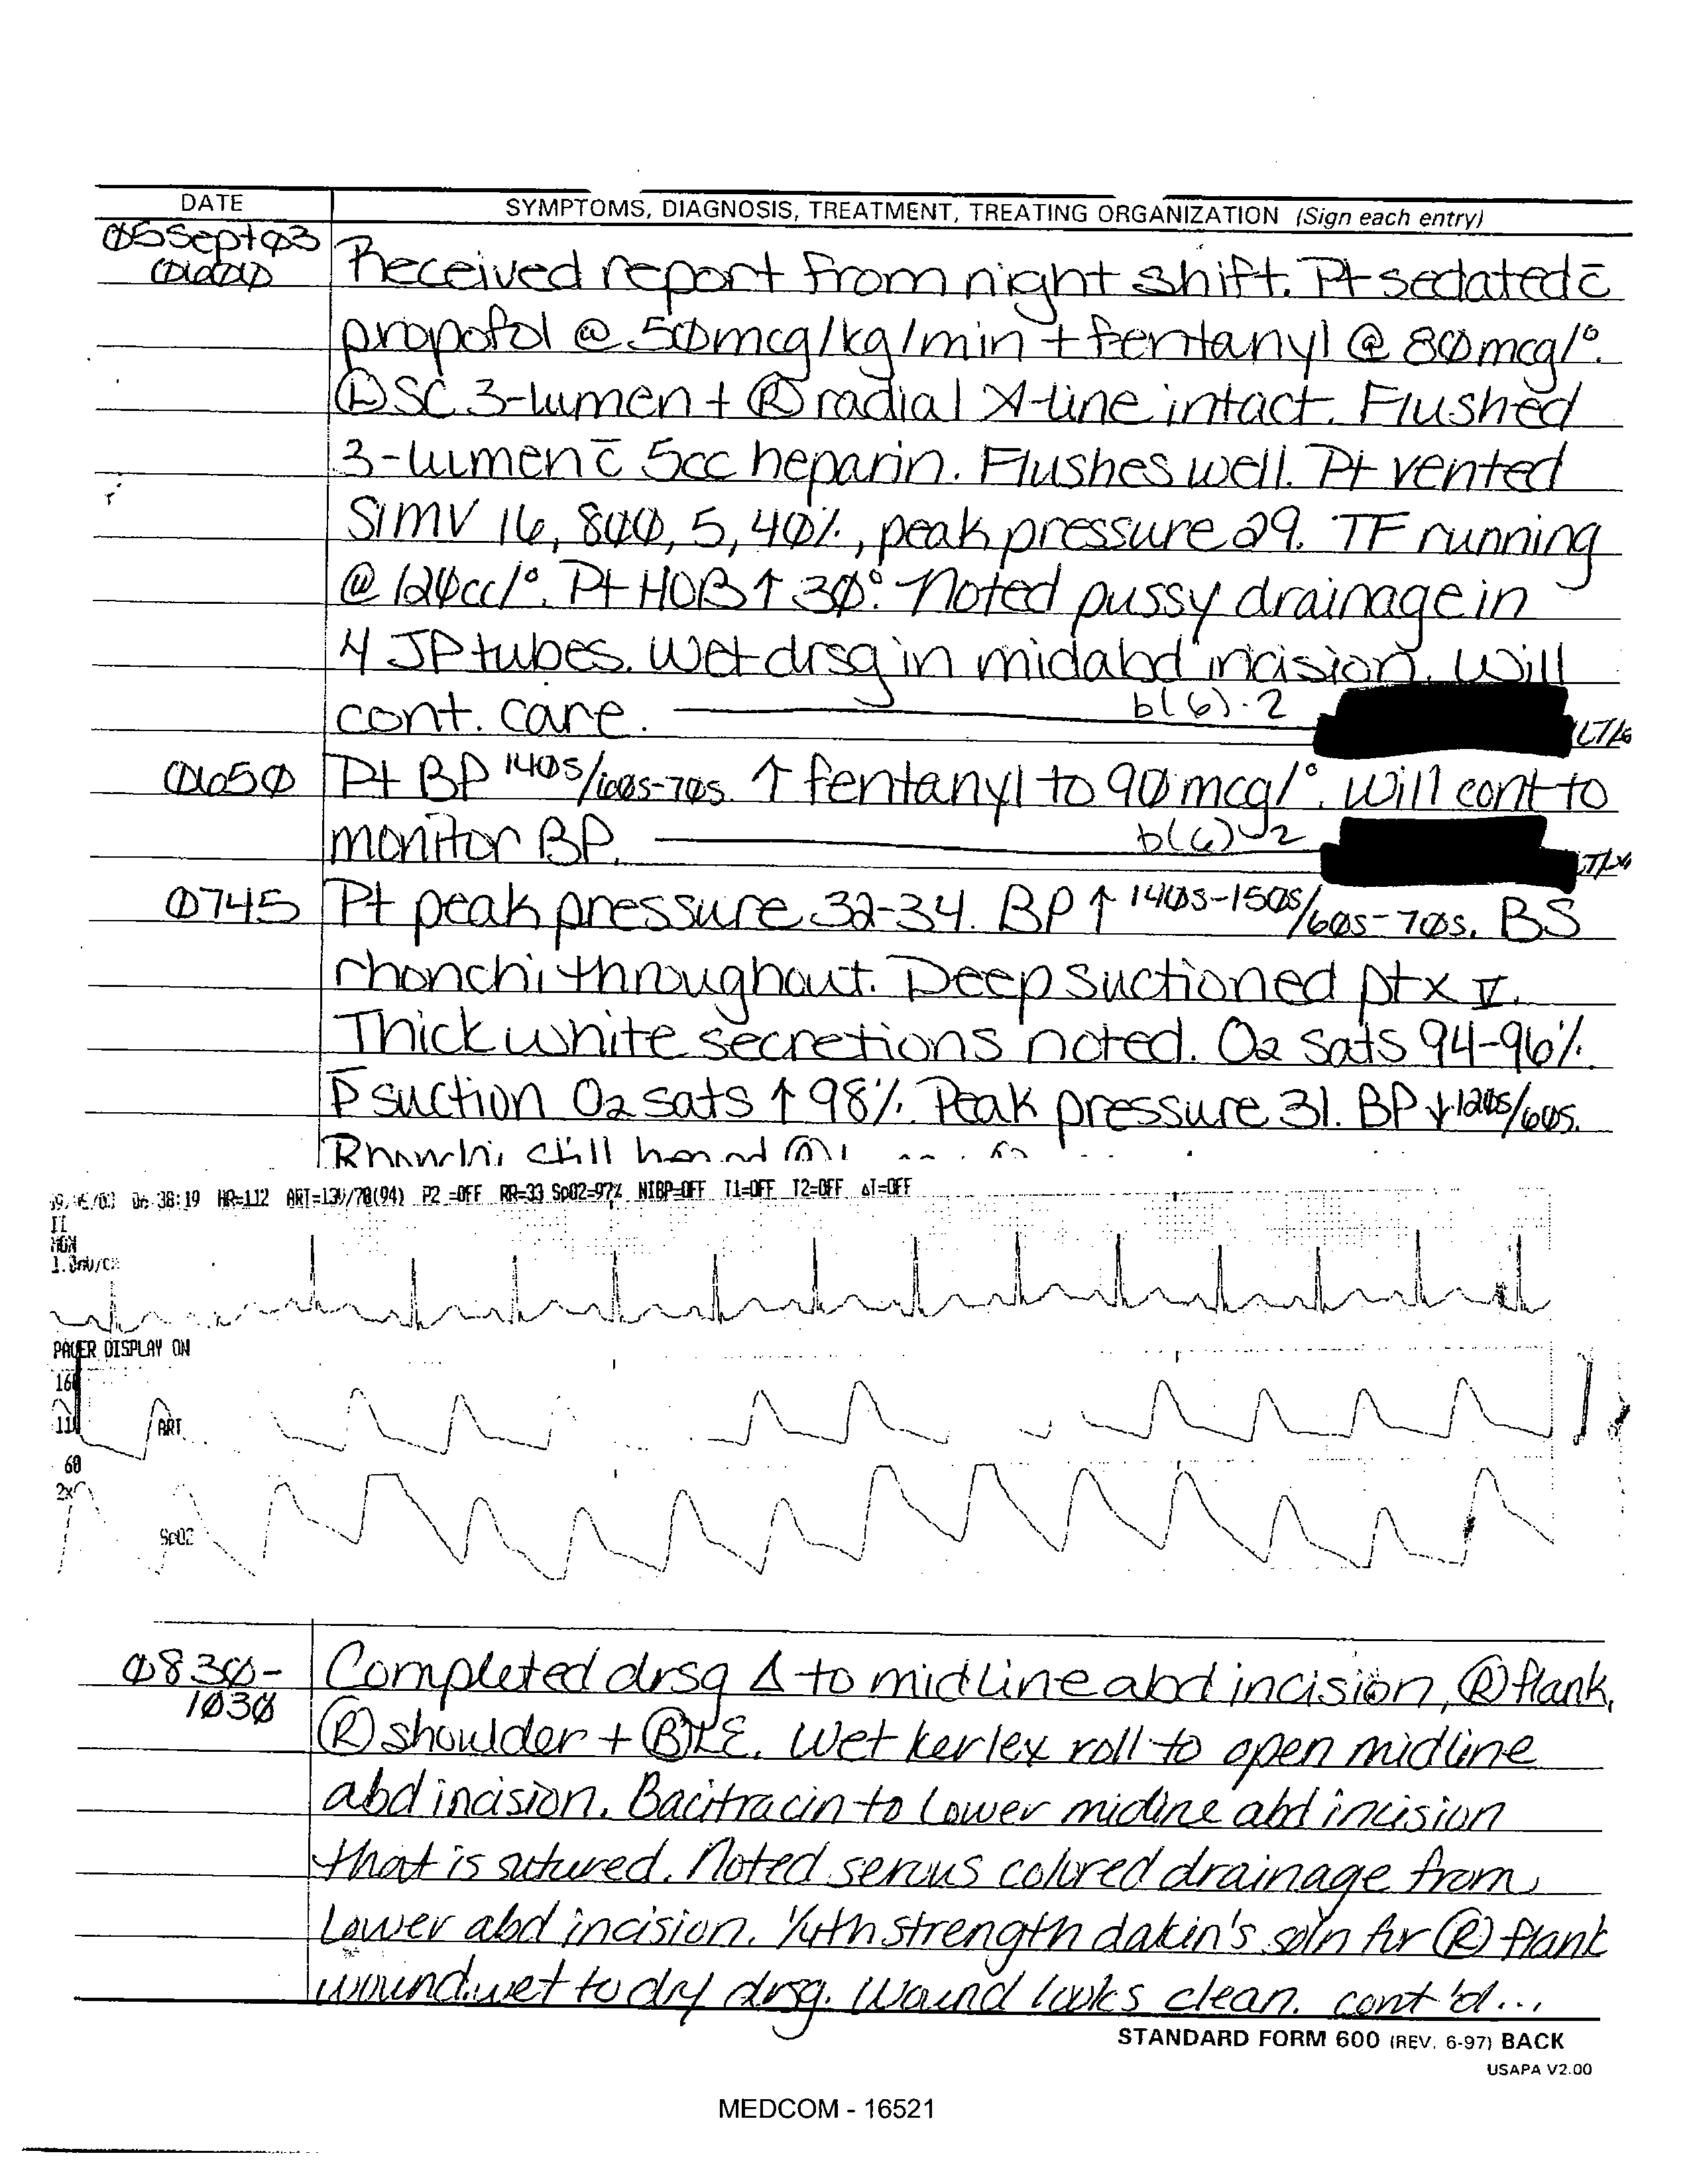 DATE
SYMPTOMS, DIAGNOSIS, TREATMENT, TREATING ORGANIZATION (Sign each entry)
Ø5Sept Ø3
Ø6ØØ
Received report from night shift. Pt sedated c̄
propofol @ 5Ømcg/kg/min + fentanyl @ 8Ømcg/°.
Ⓛ SC 3-lumen + Ⓡ radial A-line intact. Flushed
3-lumen c̄ 5cc heparin. Flushes well. Pt vented
SIMV 16, 8ØØ, 5, 4Ø%, peak pressure 29. TF running
@ 12Øcc/°. Pt HOB ↑ 3Ø°. Noted pussy drainage in
4 JP tubes. Wet drsg in midabd incision. Will
cont. care.
b(6)-2
Ø65Ø Pt BP 14Øs/6Øs-7Øs. ↑ fentanyl to 9Ømcg/°. Will cont to
monitor BP.
b(6)-2
Ø745 Pt peak pressure 32-34. BP ↑ 14Øs-15Øs/6Øs-7Øs. BS
rhonchi throughout. Deep suctioned pt x V.
Thick white secretions noted. O2 sats 94-96%.
P̄ suction O2 sats ↑ 98%. Peak pressure 31. BP ↓ 12Øs/6Øs.
Rhonchi still heard
06:38:19 HR=112 ART=139/78(94) P2 =OFF RR=33 SpO2=97% NIBP=OFF T1=OFF T2=OFF ΔT=OFF
II
MON
1.0mV/cm
PACER DISPLAY ON
160
110
ART
60
2x
SpO2
Ø83Ø-
1Ø3Ø
Completed drsg Δ to midline abd incision, Ⓡ flank,
Ⓡ shoulder + ⒷLE. Wet kerlex roll to open midline
abd incision. Bacitracin to lower midline abd incision
that is sutured. Noted serous colored drainage from
lower abd incision. 1/4th strength dakin's soln for Ⓡ flank
wound wet to dry drsg. Wound looks clean. cont'd...
STANDARD FORM 600 (REV. 6-97) BACK
USAPA V2.00
MEDCOM - 16521